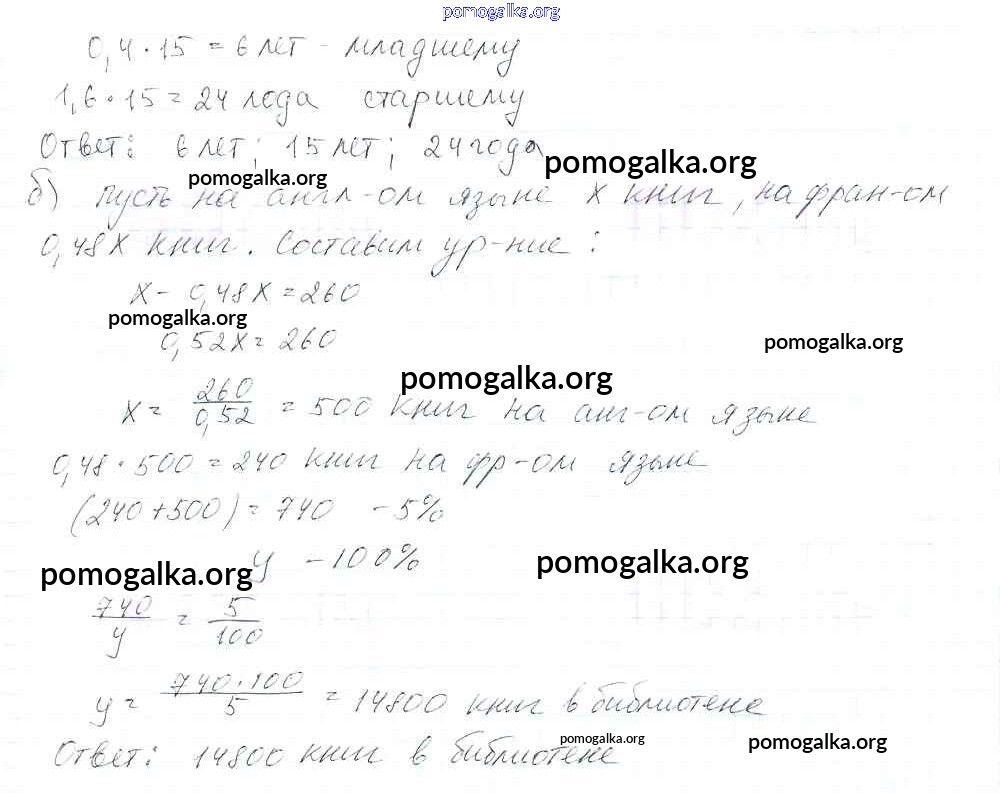 pomogalka.org
0,4 · 15 = 6 лет - младшему
1,6 · 15 = 24 года старшему
Ответ: 6 лет; 15 лет; 24 года
pomogalka.org
pomogalka.org
б) пусть на англ-ом языке х книг, на фран-ом
0,48х книг. Составим ур-ние:
х - 0,48х = 260
pomogalka.org
0,52х = 260
pomogalka.org
pomogalka.org
х = 260/0,52 = 500 книг на анг-ом языке
0,48 · 500 = 240 книг на фр-ом языке
(240 + 500) = 740 - 5%
у - 100%
pomogalka.org
pomogalka.org
740/у = 5/100
у = 740·100/5 = 14800 книг в библиотеке
pomogalka.org
pomogalka.org
Ответ: 14800 книг в библиотеке